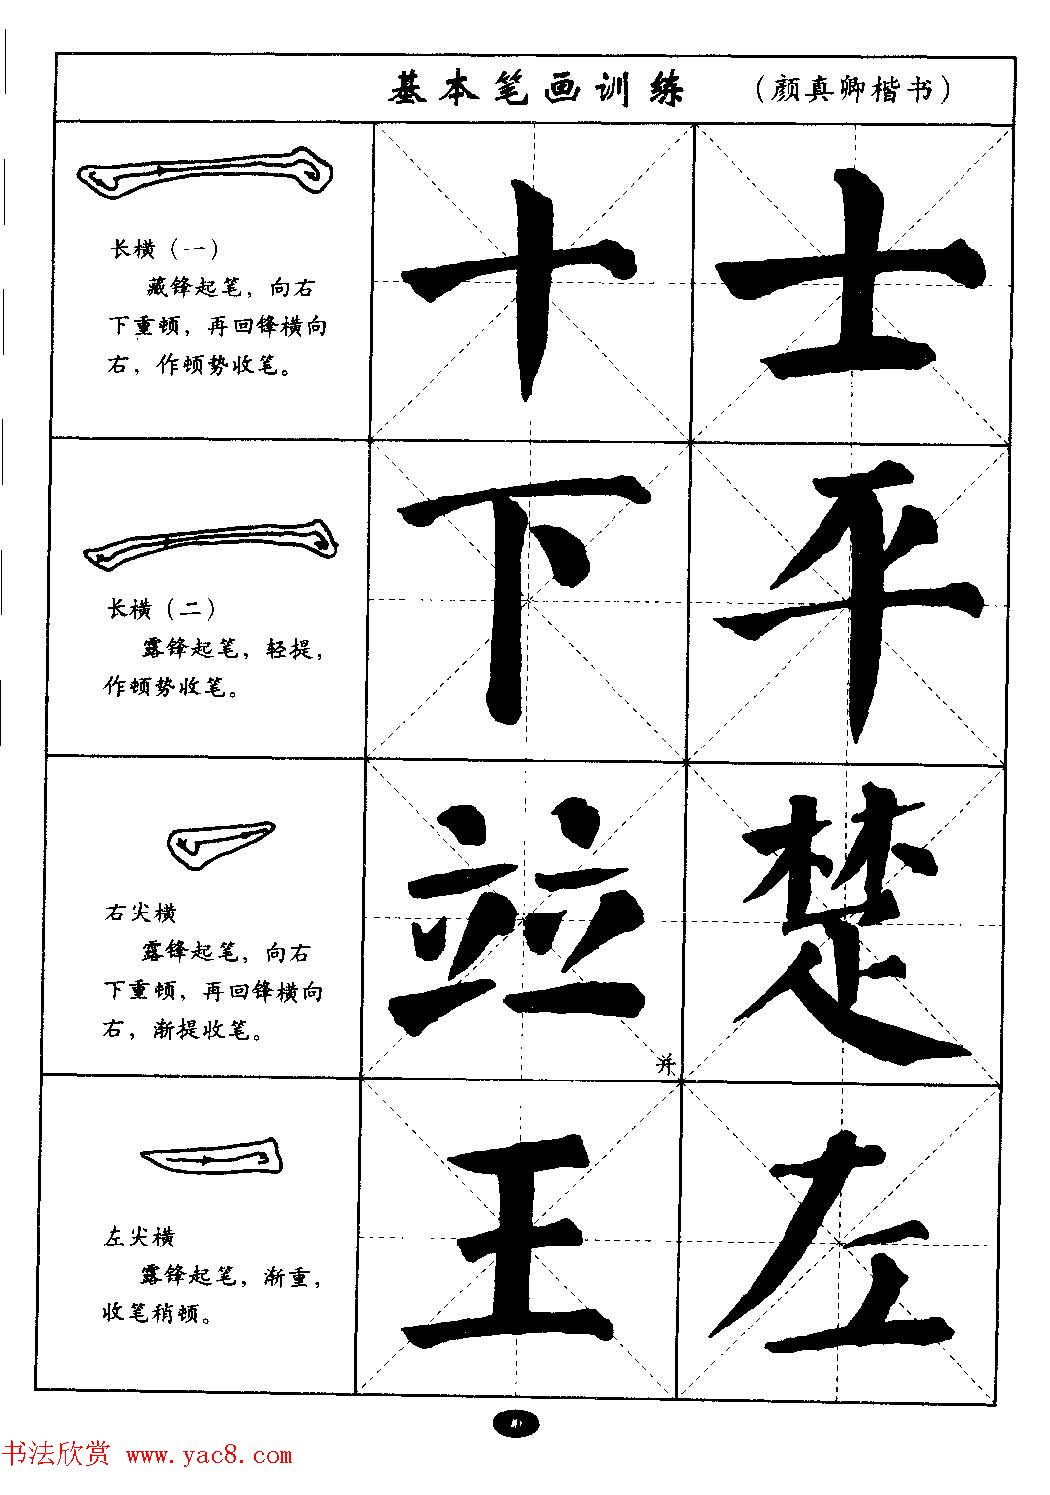 基本笔画训练 （颜真卿楷书）
长横（一）
藏锋起笔，向右
下重顿，再回锋横向
右，作顿势收笔。
十 士
长横（二）
露锋起笔，轻提，
作顿势收笔。
下 平
右尖横
露锋起笔，向右
下重顿，再回锋横向
右，渐提收笔。
竝 楚
并
左尖横
露锋起笔，渐重，
收笔稍顿。
王 左
书法欣赏 www.yac8.com